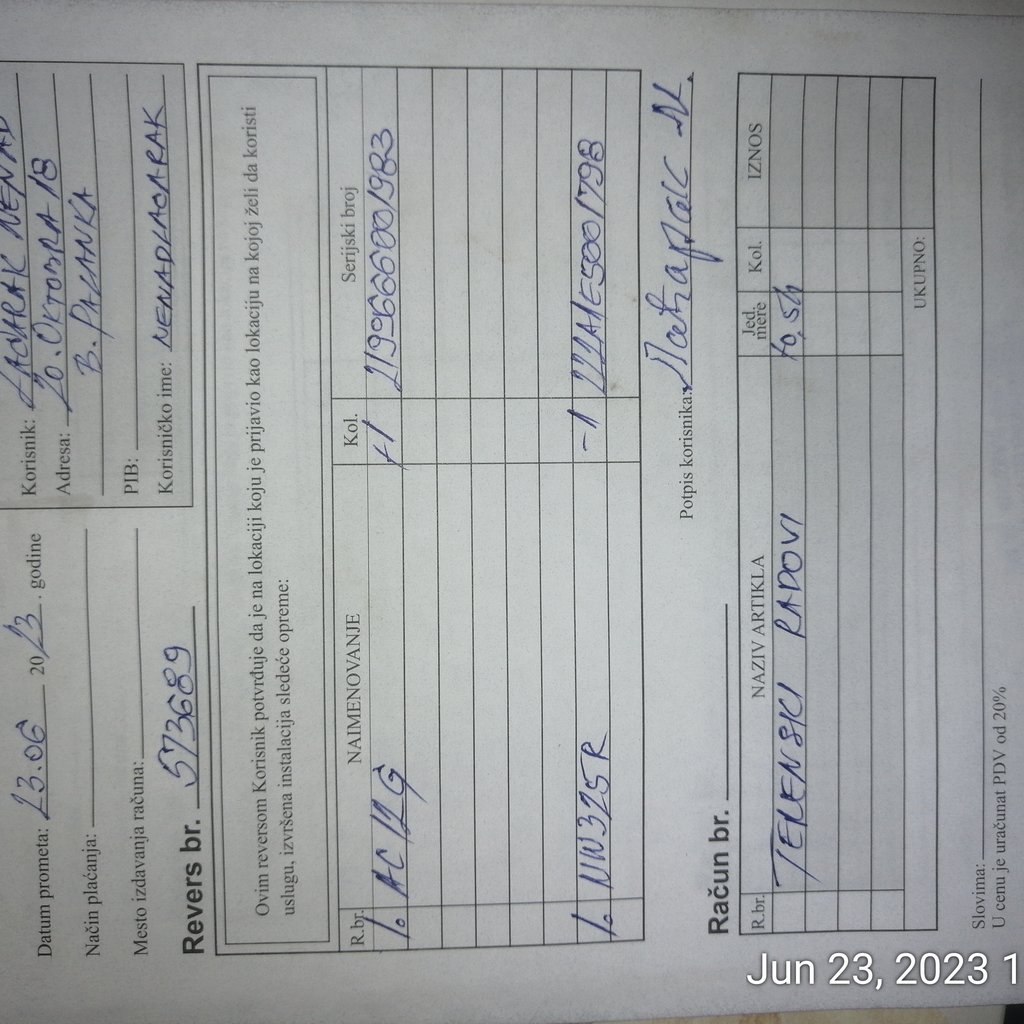 Datum prometa: 23.06 2023. godine
Način plaćanja:
Mesto izdavanja računa:
Korisnik: LADARAK NENAD
Adresa: 20. OKTOBRA 18
B. PALANKA
PIB:
Korisničko ime: NENADLADARAK
Revers br. 573689
Ovim reversom Korisnik potvrđuje da je na lokaciji koju je prijavio kao lokaciju na kojoj želi da koristi
uslugu, izvršena instalacija sledeće opreme:
R.br. NAIMENOVANJE Kol. Serijski broj
1. AC12G +1 2199666001983
1. NW325R -1 222A1E5001798
Potpis korisnika:
Račun br.
R.br. NAZIV ARTIKLA Jed. mere Kol. IZNOS
TERENSKI RADOVI
UKUPNO:
Slovima:
U cenu je uračunat PDV od 20%
Jun 23, 2023 1